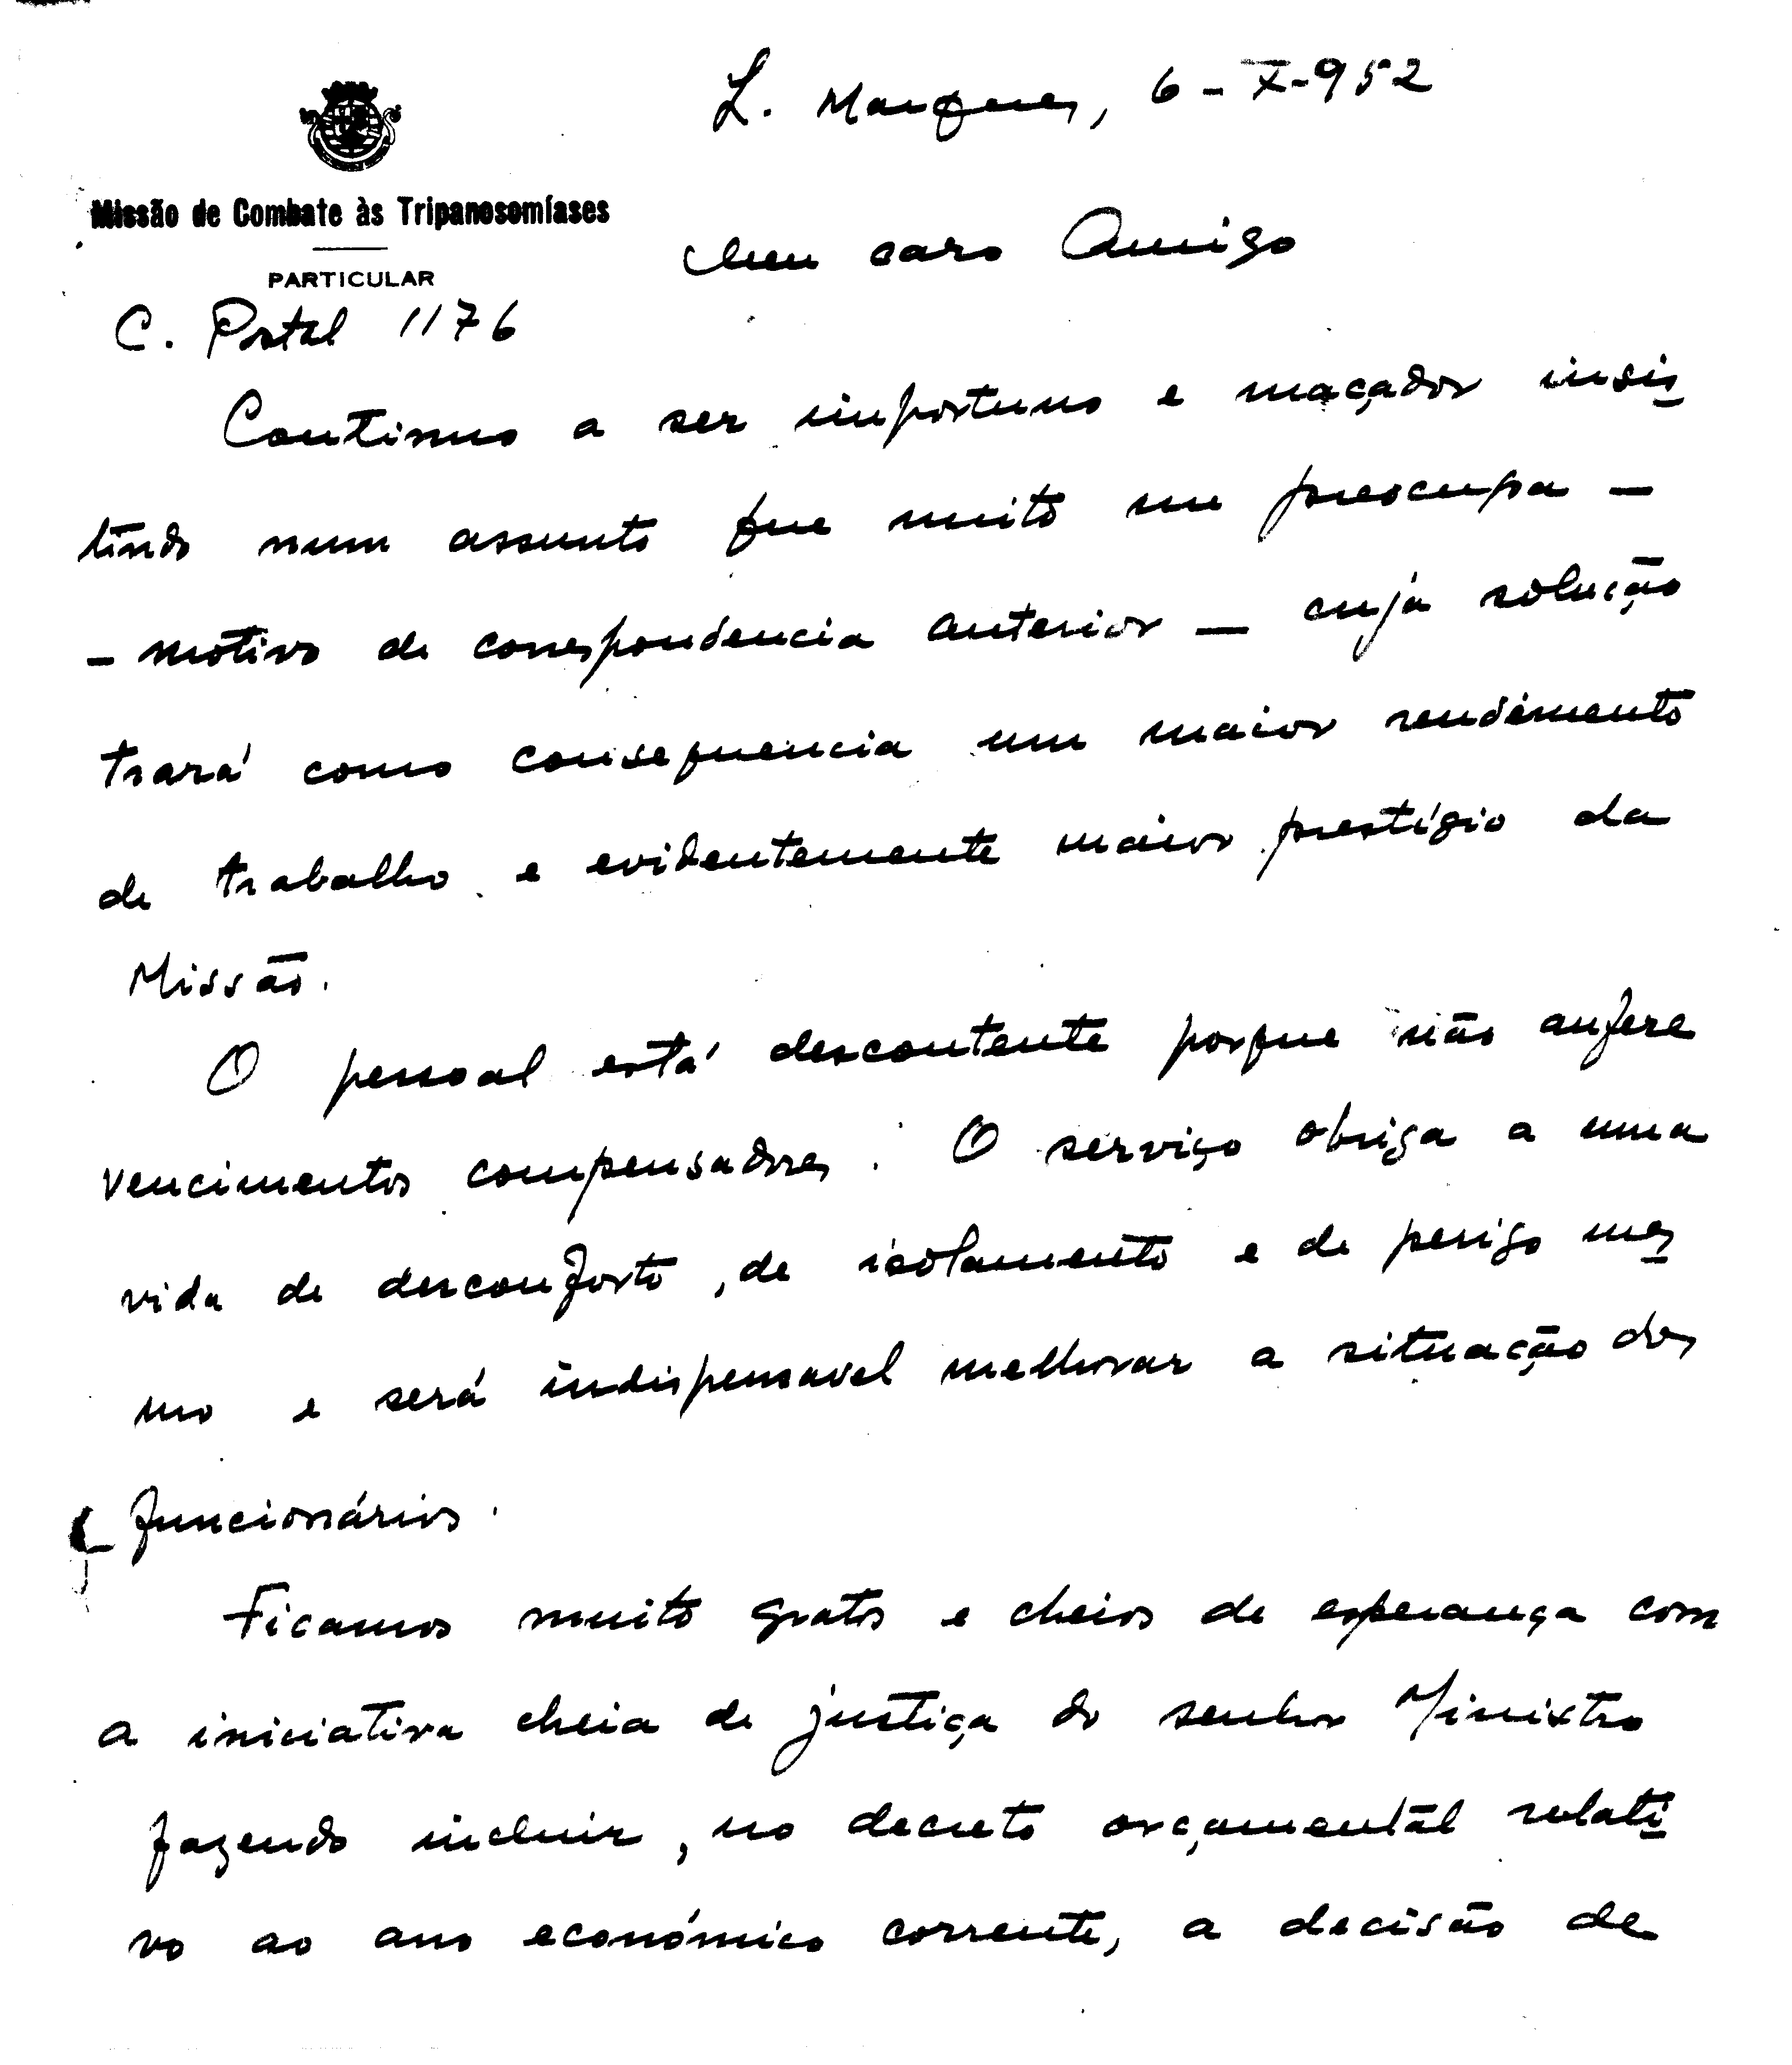 L. Marques, 6-X-952
Missão de Combate às Tripanosomíases
PARTICULAR
Meu caro Amigo
C. Postal 1176
Continuo a ser importuno e maçador insis
tindo num assunto que muito me preocupa -
- motivo de correspondencia anterior - cuja solução
trará como consequencia um maior rendimento
de trabalho e evidentemente maior prestígio da
Missão.
O pessoal está descontente porque não aufere
vencimentos compensadores. O serviço obriga a uma
vida de desconforto, de isolamento e de perigo mes
mo e será indispensavel melhorar a situação dos
funcionários.
Ficamos muito gratos e cheios de esperança com
a iniciativa cheia de justiça do senhor Ministro
fazendo incluir, no decreto orçamental relati
vo ao ano económico corrente, a decisão de